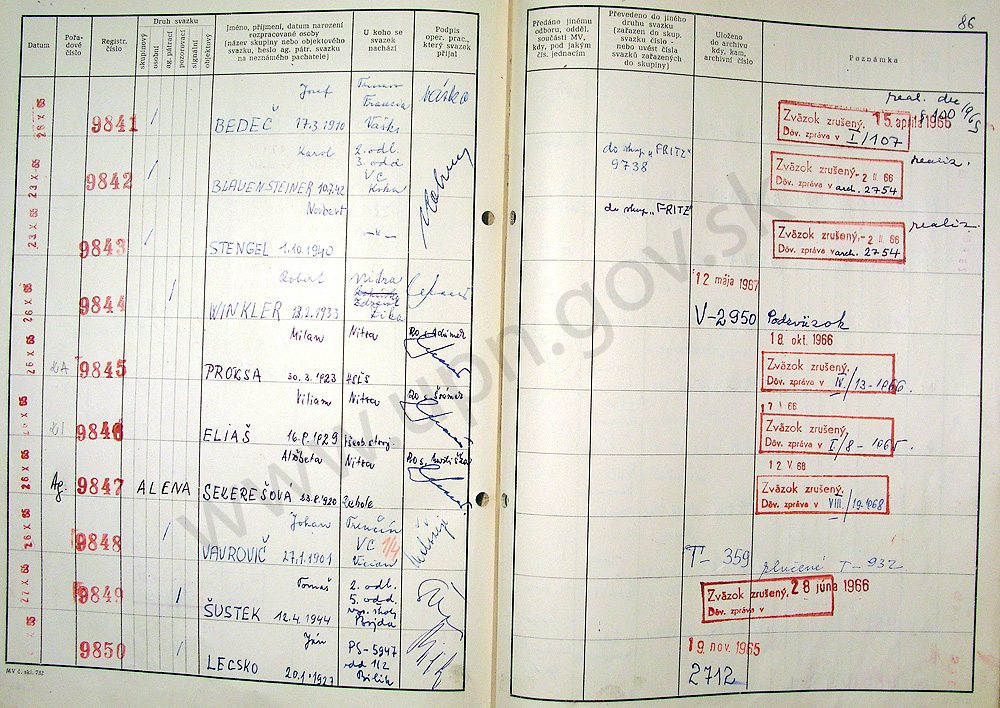 86
Datum
Pořadové číslo
Registr. číslo
Druh svazku
skupinový
osobní
ag. pátrací
pozorovací
signální
objektový
Jméno, příjmení, datum narození
rozpracované osoby
(název skupiny nebo objektového
svazku, heslo ag. pátr. svazku
na neznámého pachatele)
U koho se
svazek
nachází
Podpis
oper. prac.,
který svazek
přijal
Předáno jinému
odboru, odděl.
součásti MV,
kdy, pod jakým
čís. jednacím
Převedeno do jiného
druhu svazku
(zařazen do skup.
svazku číslo —
nebo uvést čísla
svazků zařazených
do skupiny)
Uloženo
do archivu
kdy, kam,
archivní číslo
Poznámka
9841
Jozef
BEDEČ 17.3 1910
Zväzok zrušený. 15. apríla 1966
Dôv. zpráva v I/107
23 X 65
9842
Karol
BLAUENSTEINER 10.7.42
2. odb.
3. odd
VC
do skup. „FRITZ“
9738
Zväzok zrušený. - 2 II. 66
Dôv. zpráva v arch. 2754
realiz.
23 X 65
9843
Norbert
STENGEL 1.10.1940
— „ —
do skup. „FRITZ“
Zväzok zrušený. - 2 II. 66
Dôv. zpráva v arch. 2754
realiz.
26 X 65
9844
Robert
WINKLER 18.2.1933
Nitra
12 mája 1967
V-2950
Podzväzok
26 X 65
9845
Milan
PROKSA 30.3.1923
Nitra
18. okt. 1966
Zväzok zrušený.
Dôv. zpráva v IV./13-1966.
26 X 65
9846
Viliam
ELIÁŠ 16.8.1929
Nitra
Zväzok zrušený.
Dôv. zpráva v I/8-1065.
26 X 65
Ag.
9847
ALENA
Alžbeta
SEKEREŠOVÁ
Nitra
12 V. 68
Zväzok zrušený.
Dôv. zpráva v VIII./19-1968
26 X 65
9848
Johan
VAVROVIČ 27.1.1901
Trenčín
VC 1/4
T- 359
zlučené T-932
27 X 65
9849
Tomáš
ŠUSTEK 12.4.1944
2. odb.
5. odd.
Bojda
Zväzok zrušený. 28 júna 1966
Dôv. zpráva v
9850
Ján
LECSKO 20.1.1927
PS-5947
odd 112
Bilik
19 nov. 1965
2712
MV č. skl. 752
www.upn.gov.sk